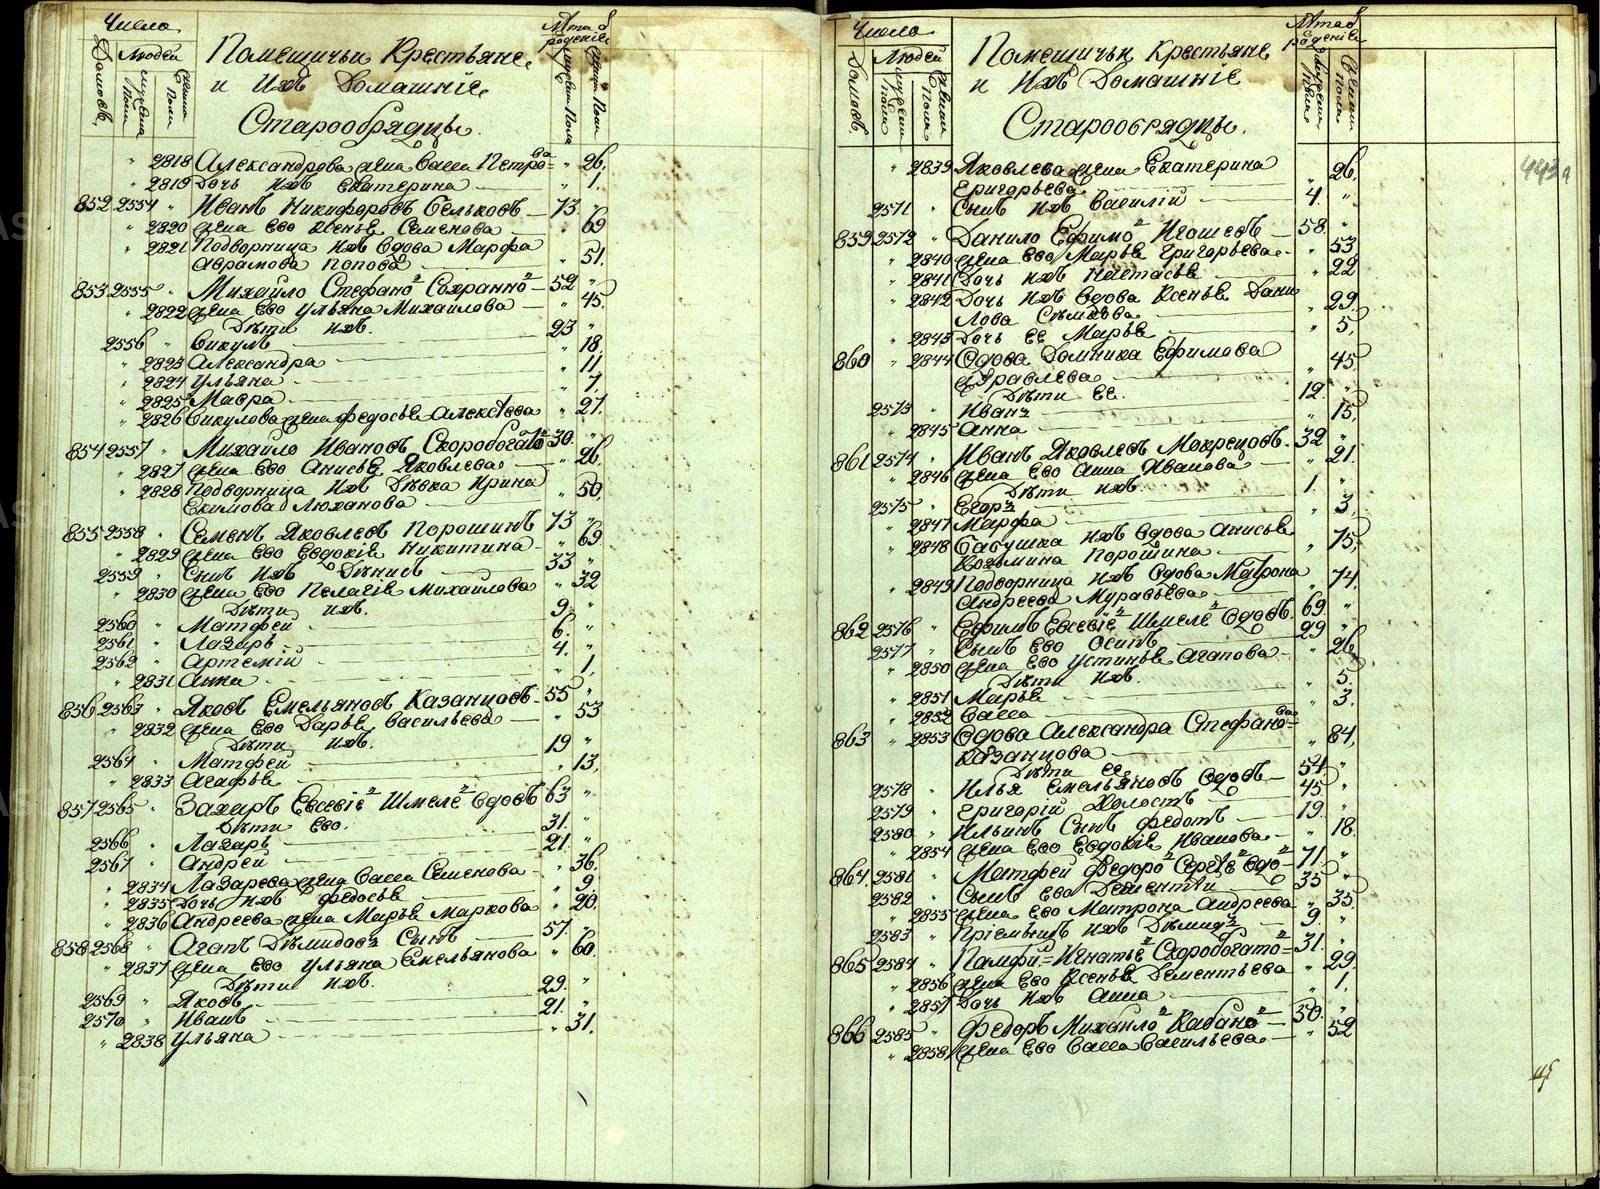 Число
Домовъ
Людей
мужеска пола
женска пола
Помещичьи Крестьяне
и Ихъ Домашніе
Старообрядцы.
Лѣта рожденіе
мужеска Пола
женска Пола
" 2818 Александрова жена Васса Петрова " 26.
" 2819 Дочь ихъ Екатерина " 1.
852 2554 " Иванъ Никифоровъ Бельковъ 73. "
" 2820 жена Ево Ксенья Семенова " 69
" 2821 Подворница ихъ вдова Марфа
Аврамова Попова " 51.
853 2555 " Михайло Стефано Сохранно 52 "
" 2822 жена Ево Ульяна Михаилова " 45
Дѣти ихъ.
2556 " Викулъ 23 "
" 2823 Александра " 18
" 2824 Ульяна " 11
" 2825 Мавра " 7.
" 2826 Викулова жена Федосья Алексѣева " 27.
854 2557 " Михайло Ивановъ Скоробогато 30. "
" 2827 жена Ево Анисья Яковлева " 26.
" 2828 Подворница Ихъ Дѣвка Ирина
Екимова Люханова " 50.
855 2558 " Семенъ Яковлевъ Порошинъ 73 "
" 2829 жена Ево Евдокія Никитина " 69
2559 " Сынъ Ихъ Дѣнисъ 33 "
" 2830 жена Ево Пелагія Михаилова " 32
Дѣти ихъ.
2560 " Матфей 9. "
2561 " Лазарь 6. "
2562 " Артемій 4. "
" 2831 Анна " 1.
856 2563 " Яковъ Емельяновъ Казанцовъ 55 "
" 2832 жена Ево Дарья Васильева " 53
Дѣти ихъ.
2564 " Матфей 19 "
" 2833 Агафья " 13.
857 2565 " Захаръ Евсевіе Шмеле вдовъ 63 "
Дѣти Ево.
2566 " Лазарь 31. "
2567 " Андрей 21. "
" 2834 Лазарева жена Васса Семенова " 36.
" 2835 Дочь ихъ Федосья " 9.
" 2836 Андреева жена Марья Маркова " 20.
858 2568 " Агапъ Дѣмидовъ Сынъ 57. "
" 2837 жена Ево Ульяна Емельянова " 60.
Дѣти ихъ.
2569 " Яковъ 29. "
2570 " Иванъ 21. "
" 2838 Ульяна " 31.
Число
Домовъ
Людей
мужеска пола
женска Пола
Помещичьи Крестьяне
и Ихъ Домашніе
Старообрядцы.
Лѣта рожденіе
мужеска пола
женска пола
443а
" 2839 Яковлева жена Екатерина
Григорьева " 26.
2571 " Сынъ ихъ Василій 4. "
859 2572 " Данило Ефимо Игошевъ 58. "
" 2840 жена Ево Марья Григорьева " 53
" 2841 Дочь ихъ Настасья " 22
" 2842 Дочь ихъ вдова Ксенья Дани
лова Сѣмкова " 29.
" 2843 Дочь Ее Марья " 5.
860 " 2844 Вдова Домника Ефимова
Журавлева " 45
Дѣти Ее.
2573 " Иванъ 12. "
" 2845 Анна " 15.
861 2574 " Иванъ Яковлевъ Мокрецовъ 32 "
" 2846 жена Ево Анна Иванова " 21.
Дѣти ихъ.
2575 " Егоръ 1. "
" 2847 Марфа " 3.
" 2848 Бабушка ихъ вдова Анисья
Козьмина Порошина " 75.
" 2849 Подворница ихъ вдова Матрона
Андреева Муравьева " 74.
862 2576 " Ефимъ Евсевіе Шмеле Вдовъ. 69. "
2577 " Сынъ Ево Осипъ 29 "
" 2850 жена Ево Устинья Агапова " 26
Дѣти ихъ.
" 2851 Марья " 5.
" 2852 Васса " 3.
863 " 2853 Вдова Александра Стефанова
Казанцова " 84.
Дѣти ее.
2578 " Илья Емельяновъ Вдовъ 54. "
2579 " Григорій Холостъ 45 "
2580 " Ильинъ Сынъ Федотъ 19. "
" 2854 жена Ево Евдокія Иванова " 18.
864. 2581 " Матфей Федоро Сергѣе вдо 71. "
2582 " Сынъ Ево Дементѣи 35 "
" 2855 жена Ево Матрона Андреева " 35
2583 " Пріемышъ ихъ Дѣмидъ 9 "
865 2584 " Памфи Игнатье Скоробогато 31. "
" 2856 жена Ево Ксенья Дементьева " 29
" 2857 Дочь ихъ Анна " 1.
866 2585 " Федоръ Михаило Кабано 50. "
" 2858 жена Ево Васса Васильева " 52